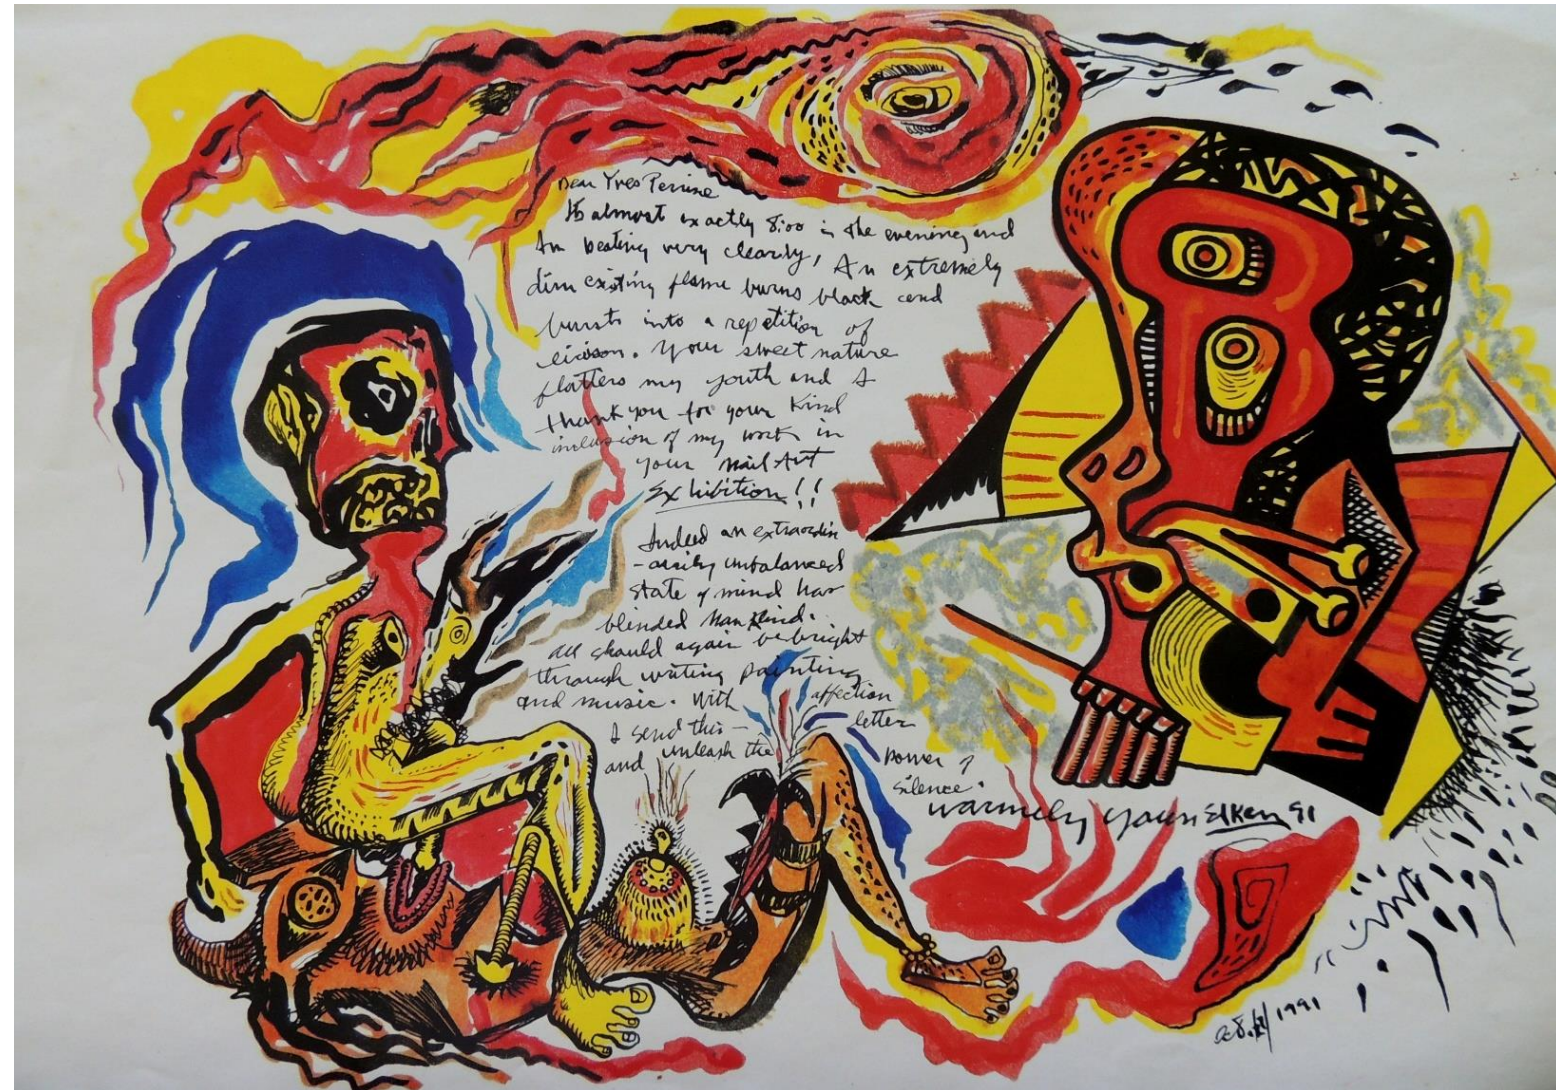 Dear Yves Perrine
Its almost exactly 8:00 in the evening and
Am beating very clearly, An extremely
dim existing flame burns black and
bursts into a repetition of
. Your sweet nature
flatters my youth and I
thank you for your Kind
inclusion of my work in
your Mail Art
Exhibition!!
Indeed an extraordin
-arily unbalanced
state of mind has
blinded Man Kind.
all should again be bright
through writing painting
and music. With affection
I send this - letter
and unleash the power of
silence.
warmely yours 91
1991